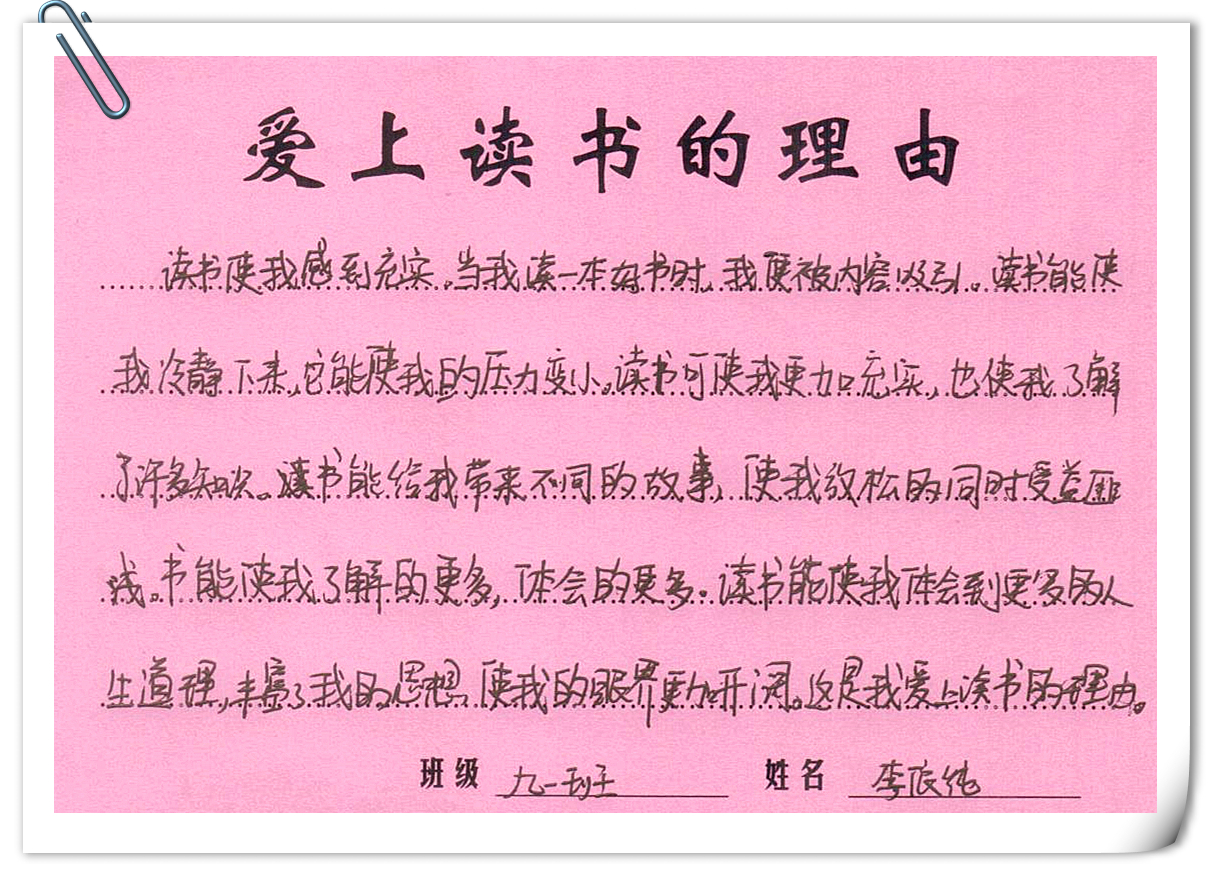 爱上读书的理由
读书使我感到充实。当我读一本好书时,我便被内容吸引。读书能使
我冷静下来,它能使我的压力变小。读书可使我更加充实,也使我了解
了许多知识。读书能给我带来不同的故事,使我放松的同时受益匪
浅。书能使我了解的更多,体会的更多。读书能使我体会到更多的人
生道理,丰富了我的思想,使我的眼界更加开阔。这是我爱上读书的理由。
班级 九一班 姓名 李